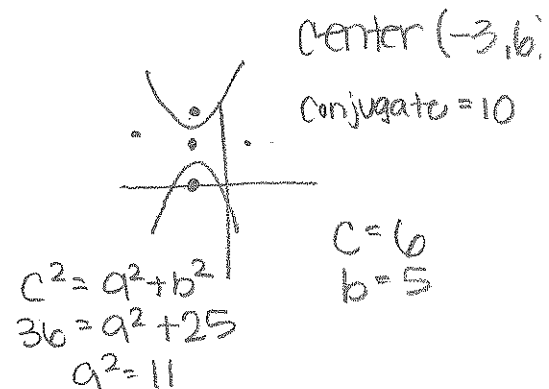 center (-3,6)
conjugate = 10
c = 6
b = 5
c² = a² + b²
36 = a² + 25
a² = 11